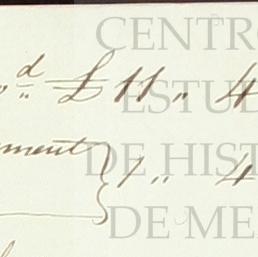 d " £ 11 " 4
ment } 1 " 4
CENTRO
ESTUD
DE HIST
DE ME